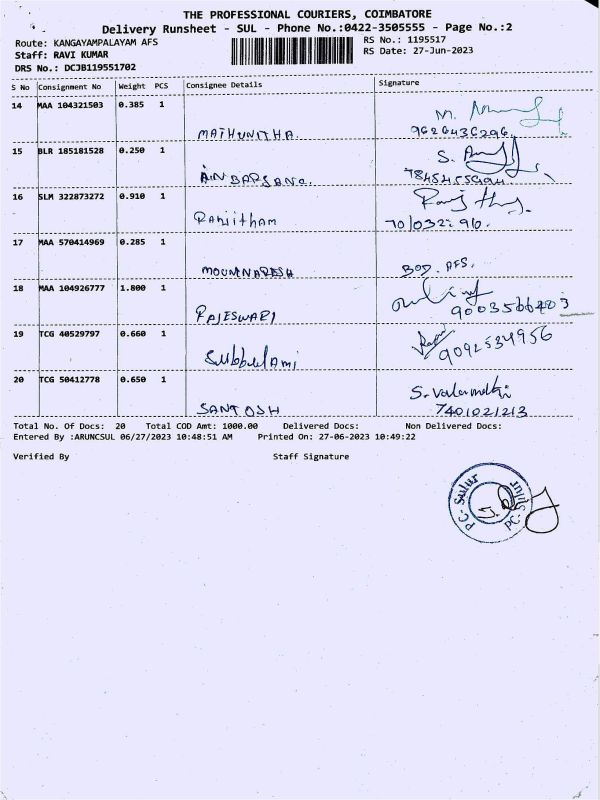 THE PROFESSIONAL COURIERS, COIMBATORE
Delivery Runsheet - SUL - Phone No.:0422-3505555 - Page No.:2
Route: KANGAYAMPALAYAM AFS
RS No.: 1195517
Staff: RAVI KUMAR
RS Date: 27-Jun-2023
DRS No.: DCJB119551702
S No Consignment No Weight PCS Consignee Details Signature
14 MAA 104321503 0.385 1
MATHUNITHA. 9626436296.
15 BLR 185181528 0.250 1 S.
16 SLM 322873272 0.910 1
Ranjitham
17 MAA 570414969 0.285 1
BOD. AFS.
18 MAA 104926777 1.800 1
RAJESWARI
19 TCG 40529797 0.660 1
9092534956
20 TCG 50412778 0.650 1
SANTOSH 7401021213
Total No. Of Docs: 20 Total COD Amt: 1000.00 Delivered Docs: Non Delivered Docs:
Entered By :ARUNCSUL 06/27/2023 10:48:51 AM Printed On: 27-06-2023 10:49:22
Verified By Staff Signature
PC-Sulur PC-Sulur